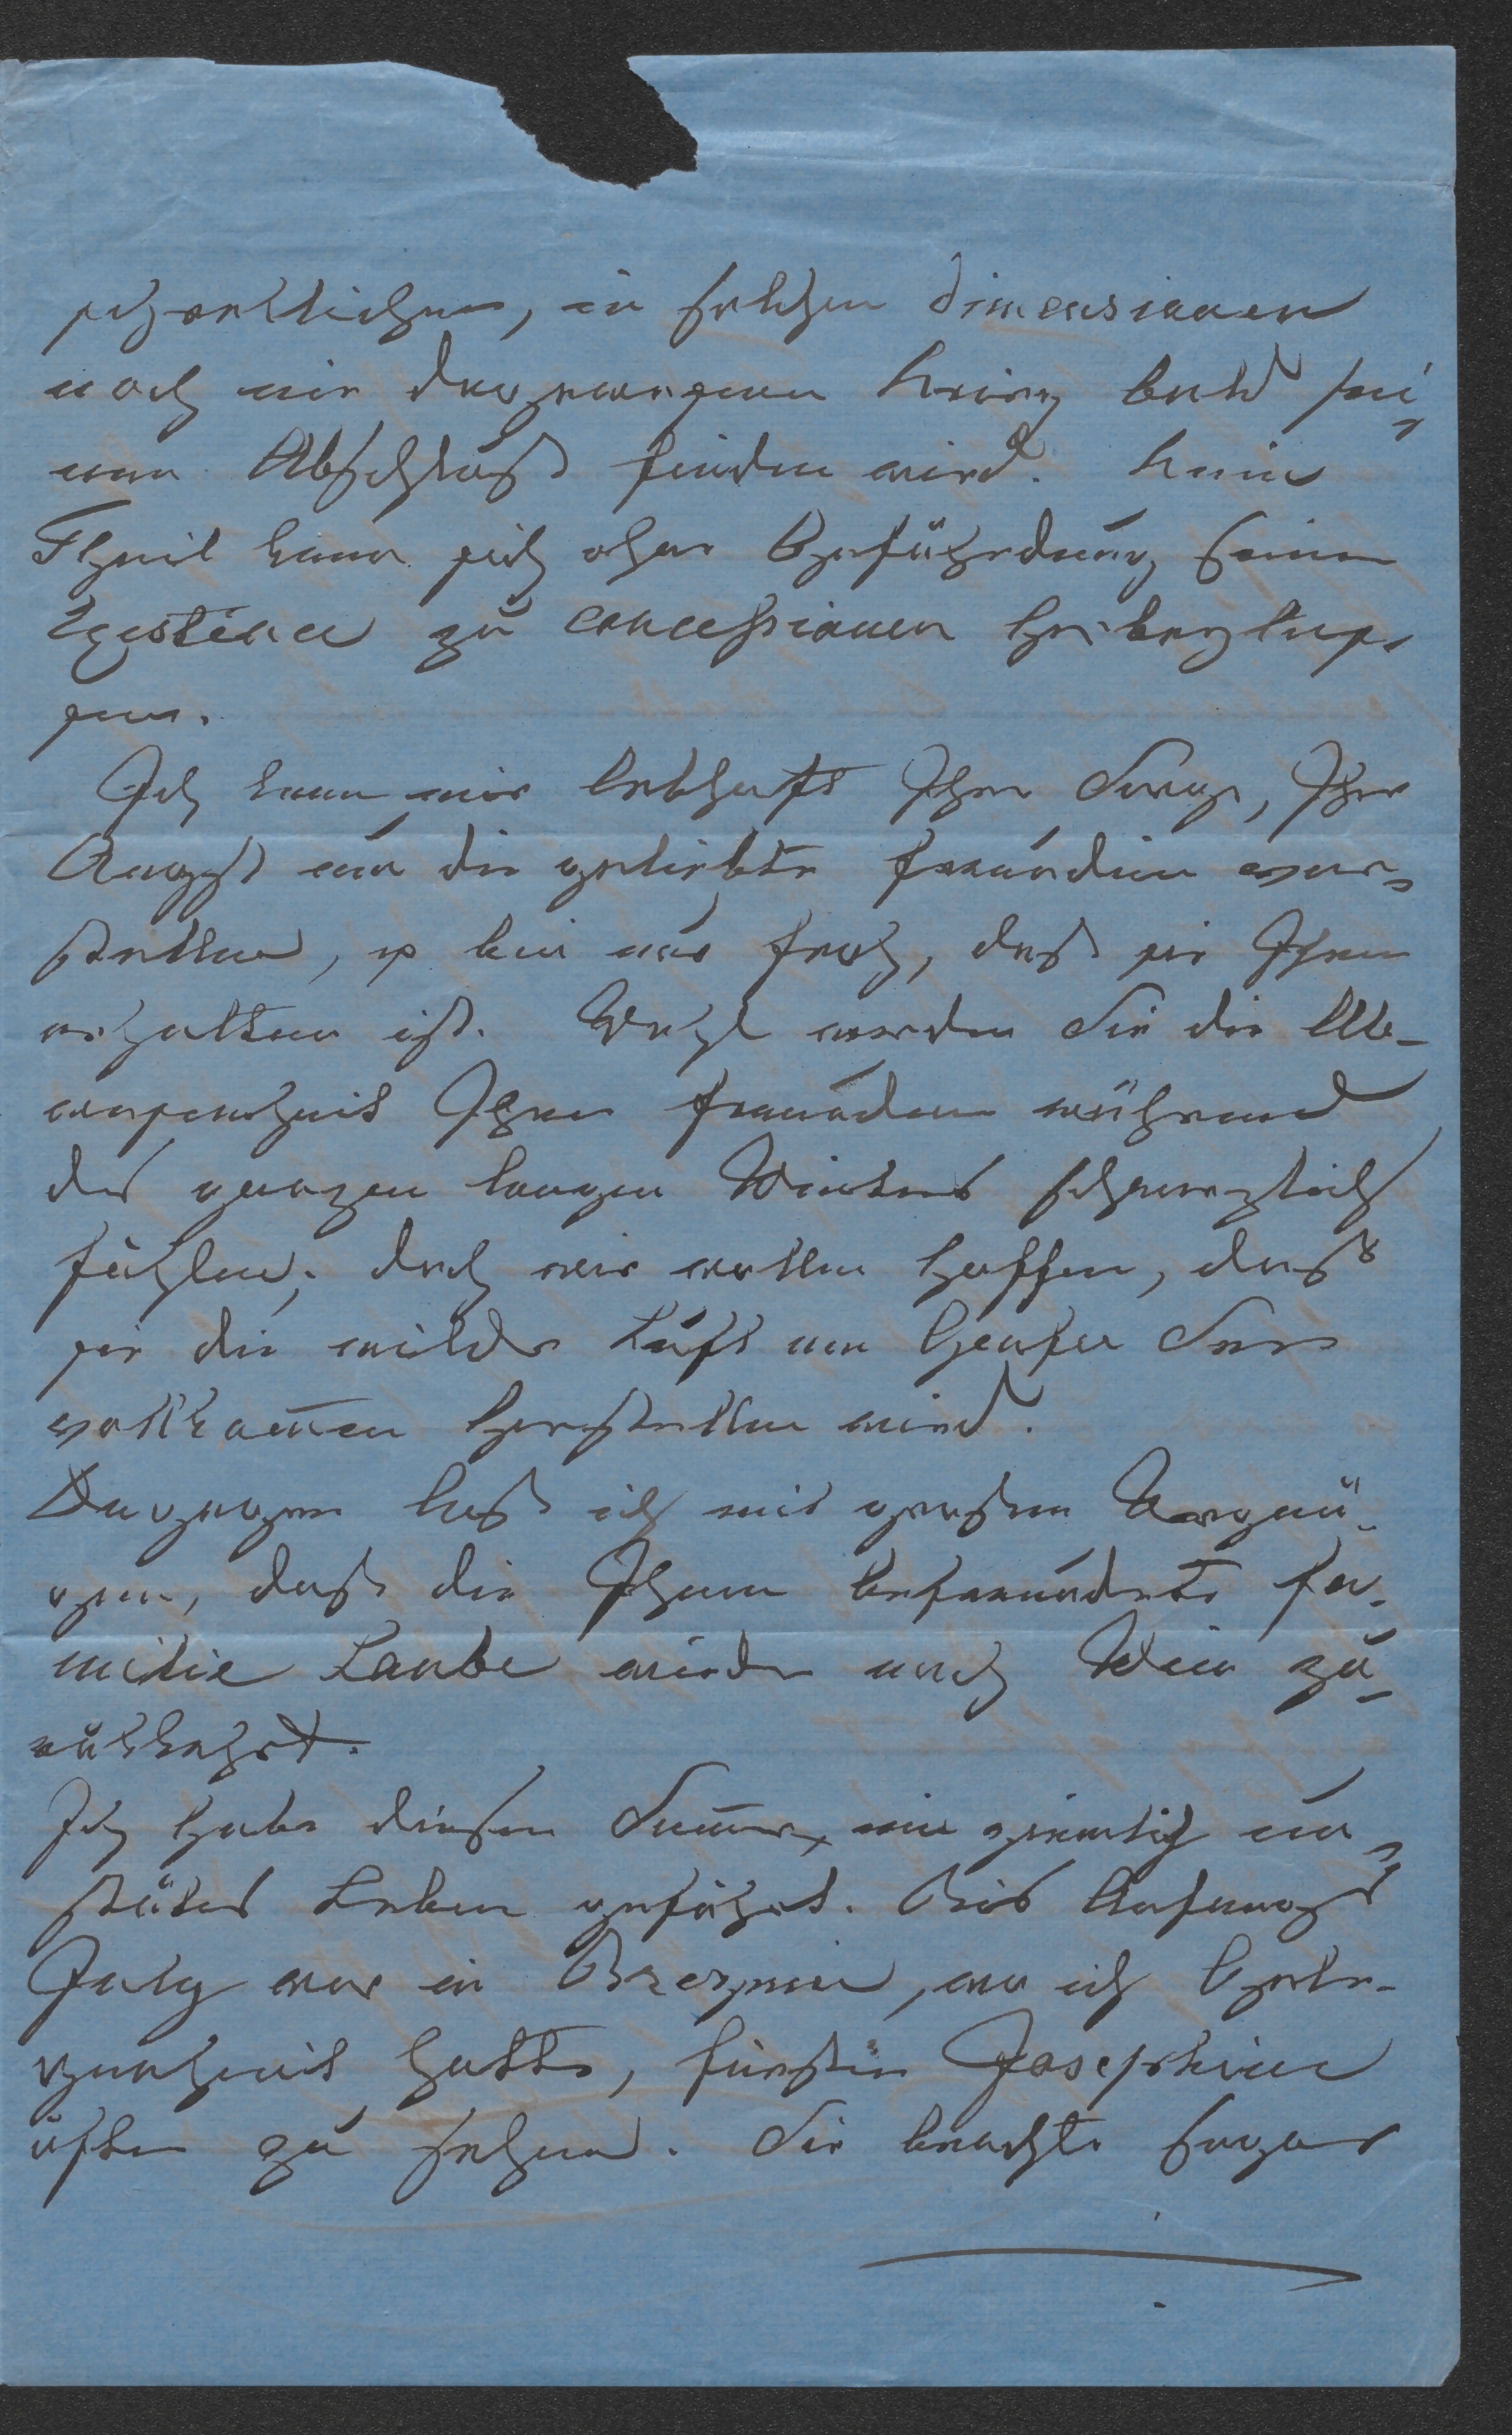 schrecklichen, in solchen Dimensionen
noch nie dagewesenen Krieg bald sei¬
nen Abschluß finden wird. Kein
Theil kann sich ohne Gefährdung seiner
Existence zu Concessionen herbeylas¬
sen.
Ich kann mir lebhaft Ihre Sorge, Ihre
Angst um die geliebte Freundin vor¬
stellen, u bin nur froh, daß sie Ihnen
erhalten ist. Wohl werden Sie die Ab¬
wesenheit Ihrer Freundin während
des ganzen langen Winters schmerzlich
fühlen; doch wir wollen hoffen, daß
sie die milde Luft am Genfer See
vollkom̅en herstellen wird.
Dagegen las ich mit großem Vergnü¬
gen, daß die Ihnen befreundete Fa¬
milie Laube wieder nach Wien zu¬
rükkehrt.
Ich habe diesen Som̅er ein ziemlich un¬
stätes Leben geführt. Bis Anfangs
July war in Breznic, wo ich Gele¬
genheit hatte, Fürstin Josephine
öfter zu sehen. Sie brachte sogar